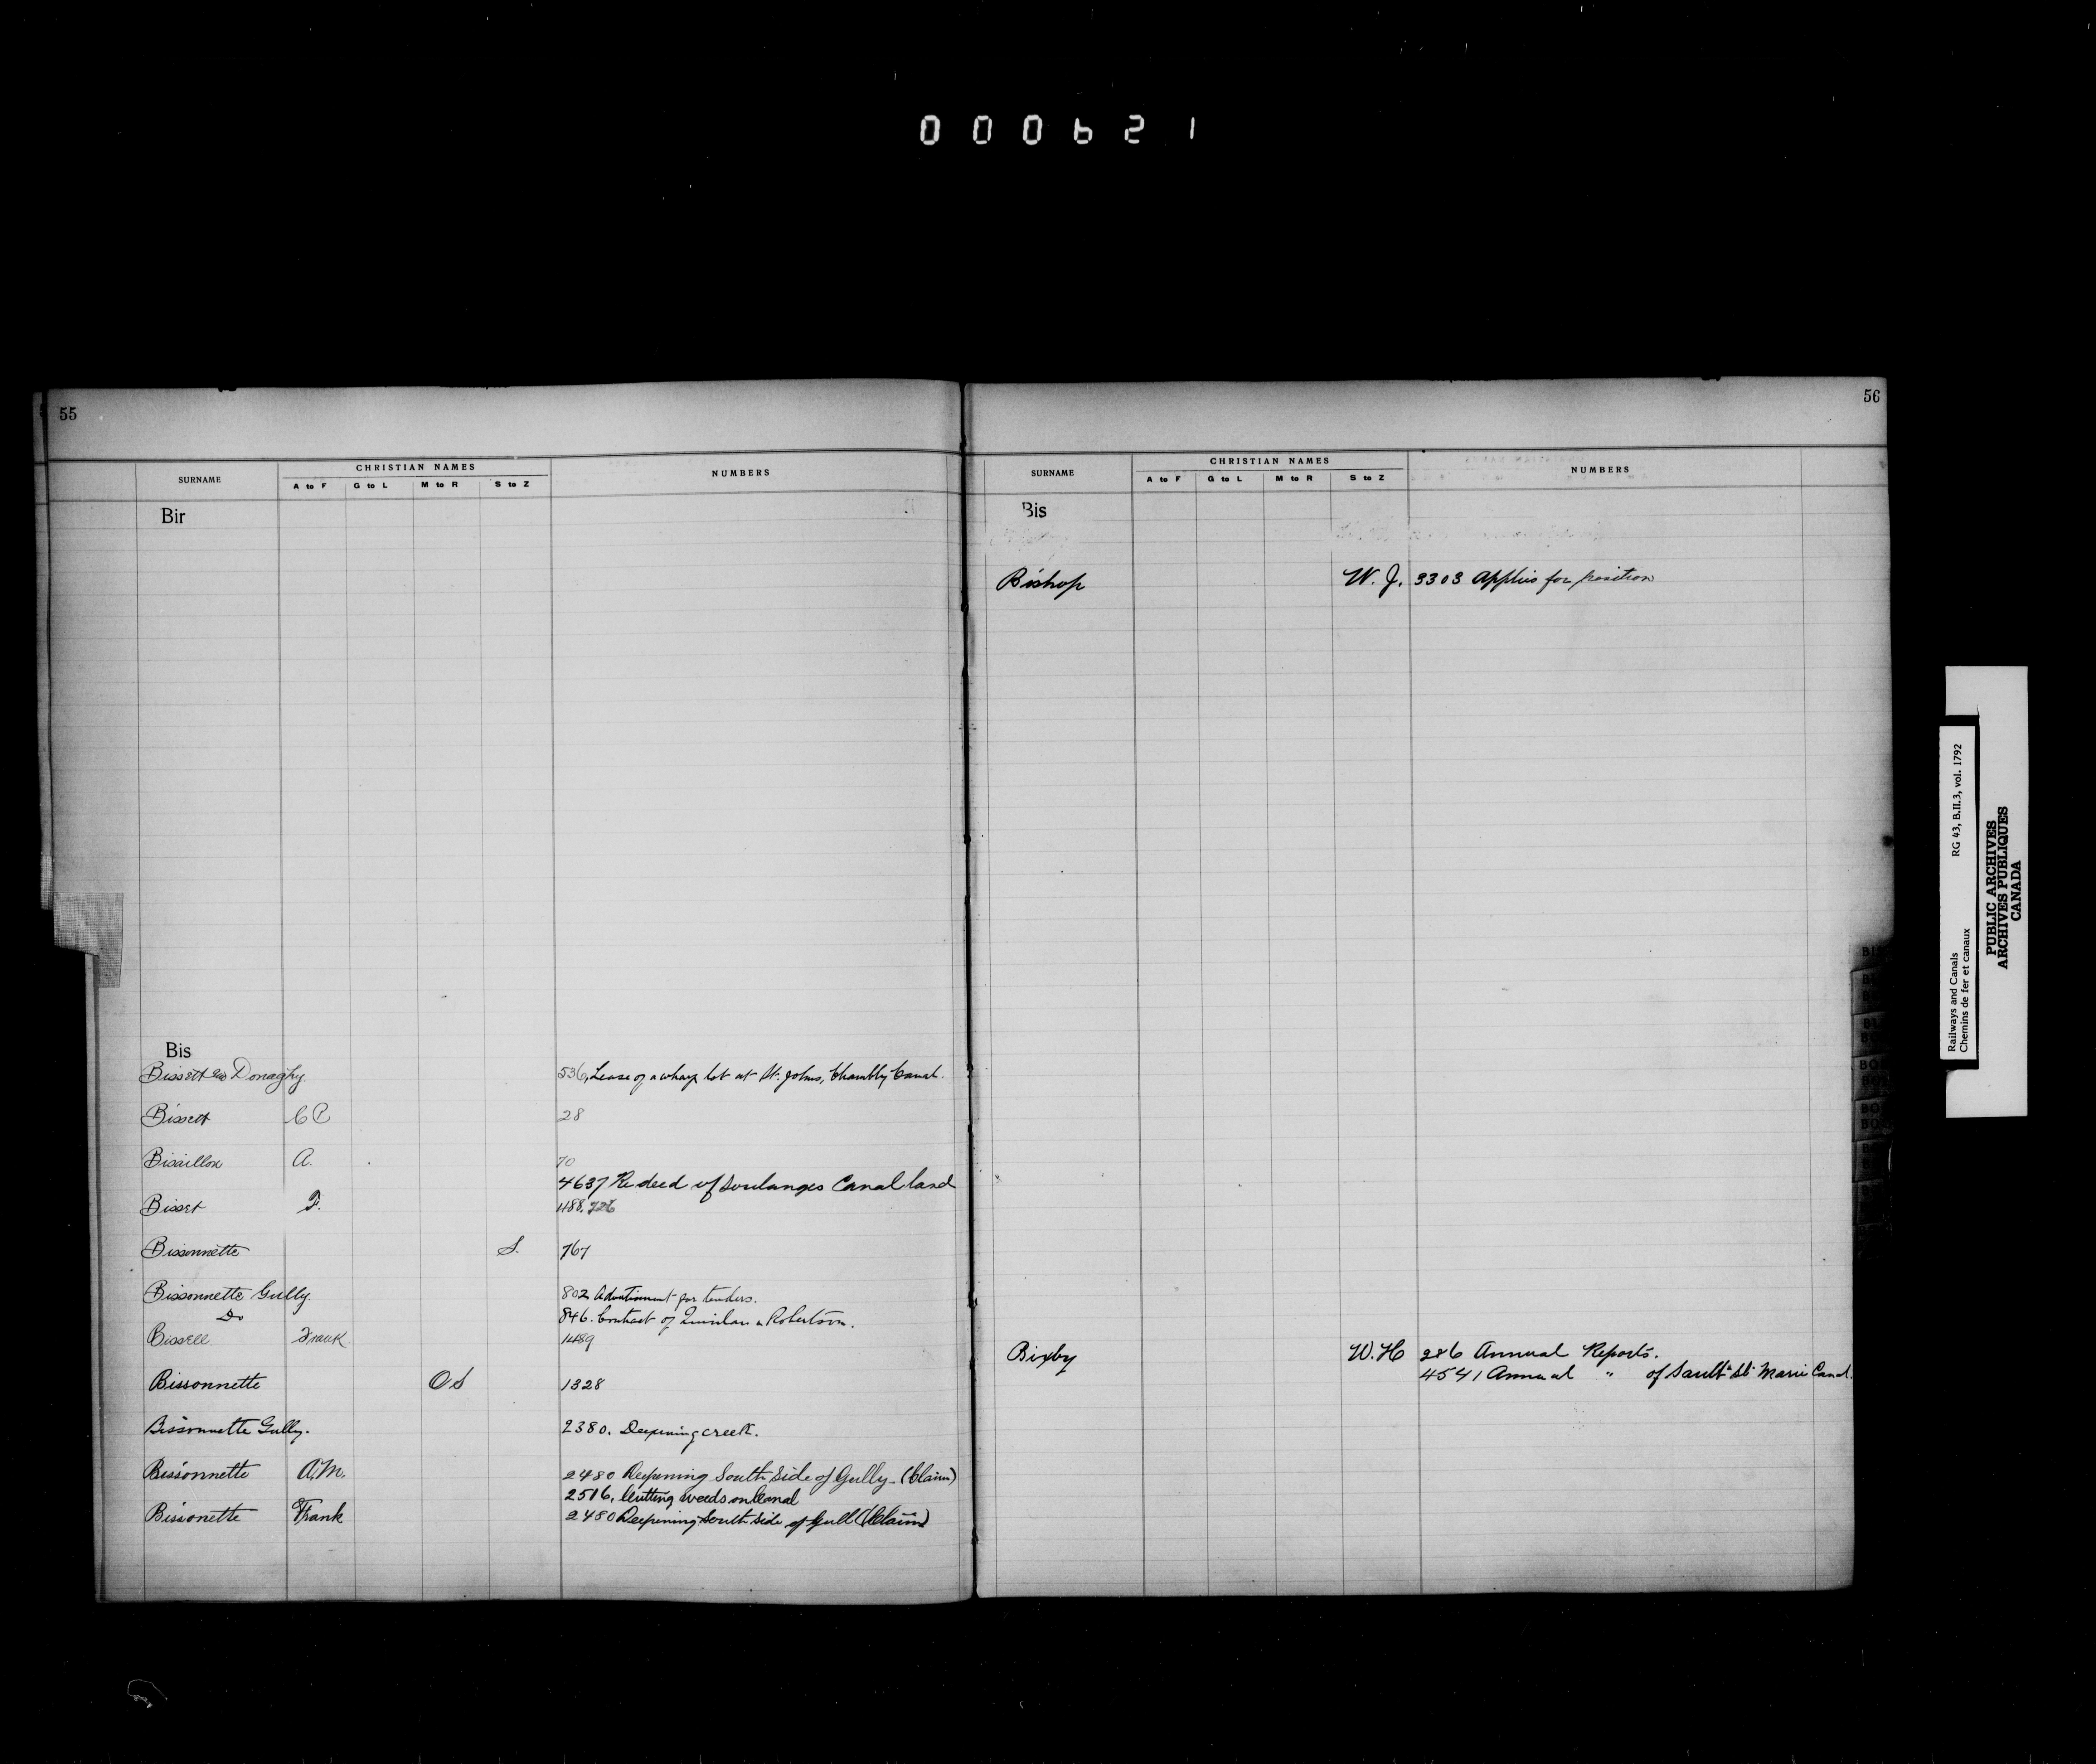 000621
55
SURNAME
CHRISTIAN NAMES
A to F G to L M to R S to Z
NUMBERS
Bir
Bis
Bissett and Donaghy. 536, Lease of a wharf lot at St. Johns, Chambly Canal.
Bissett C P 28
Bisaillon A. 70
4637 Re deed of Soulanges Canal land
Bisset F. 1188, 726
Bissonnette S. 767
Bissonnette Gully. 802 Advertisement for tenders.
Do 846. Contract of Quinlan & Robertson.
Bissell Frank 1489
Bissonnette O S 1328
Bissonnette Gully. 2380. Deepening creek.
Bissonnette A.M. 2480 Deepening South Side of Gully (Claim)
2516, Cutting weeds on Canal
Bissonette Frank 2480 Deepening South Side of Gull (Claim)
56
SURNAME
CHRISTIAN NAMES
A to F G to L M to R S to Z
NUMBERS
Bis
Bishop W. J. 3303 Applies for position
Bixby W. H 286 Annual Reports.
4541 Annual " of Sault St Marie Canal.
Railways and Canals RG 43, B.II.3, vol. 1792
Chemins de fer et canaux
PUBLIC ARCHIVES
ARCHIVES PUBLIQUES
CANADA